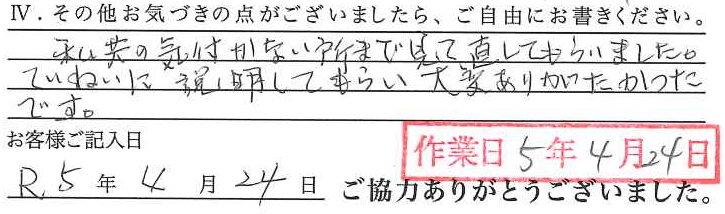 Ⅳ.その他お気づきの点がございましたら、ご自由にお書きください。
私共の気付かない所まで見て直してもらいました。
ていねいに説明してもらい大変ありがたかった
です。
お客様ご記入日
作業日 5年4月24日
R.5年4月24日 ご協力ありがとうございました。